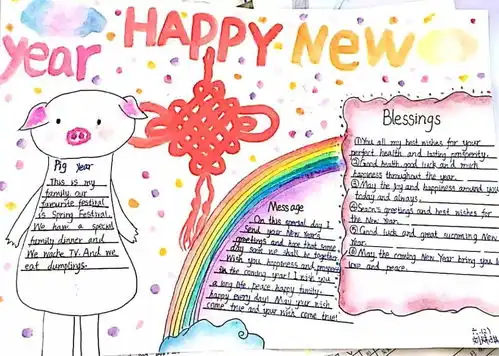 HAPPY New
year
Pig year
This is my
family, our
favourite festival
is Spring Festival.
We have a special
family dinner and
We wache TV. And we
eat dumplings.
Message
On this special day I
Send year New Year's
greetings and hope that some
day soon we shall be together.
Wish you happiness and
in the coming year! I wish you
a long life, peace happy family
happy every day! May your wish
come true and your wish come true!
Blessings
①You all my best wishes for your
perfect health and lasting prosperity.
②Good health, good luck and much
happiness throughout the year.
③May the joy and happiness around you
today and always.
④Season's greetings and best wishes for
the New Year.
⑤Good luck and great success coming New
Year.
⑥May the coming New Year bring you
love and peace.